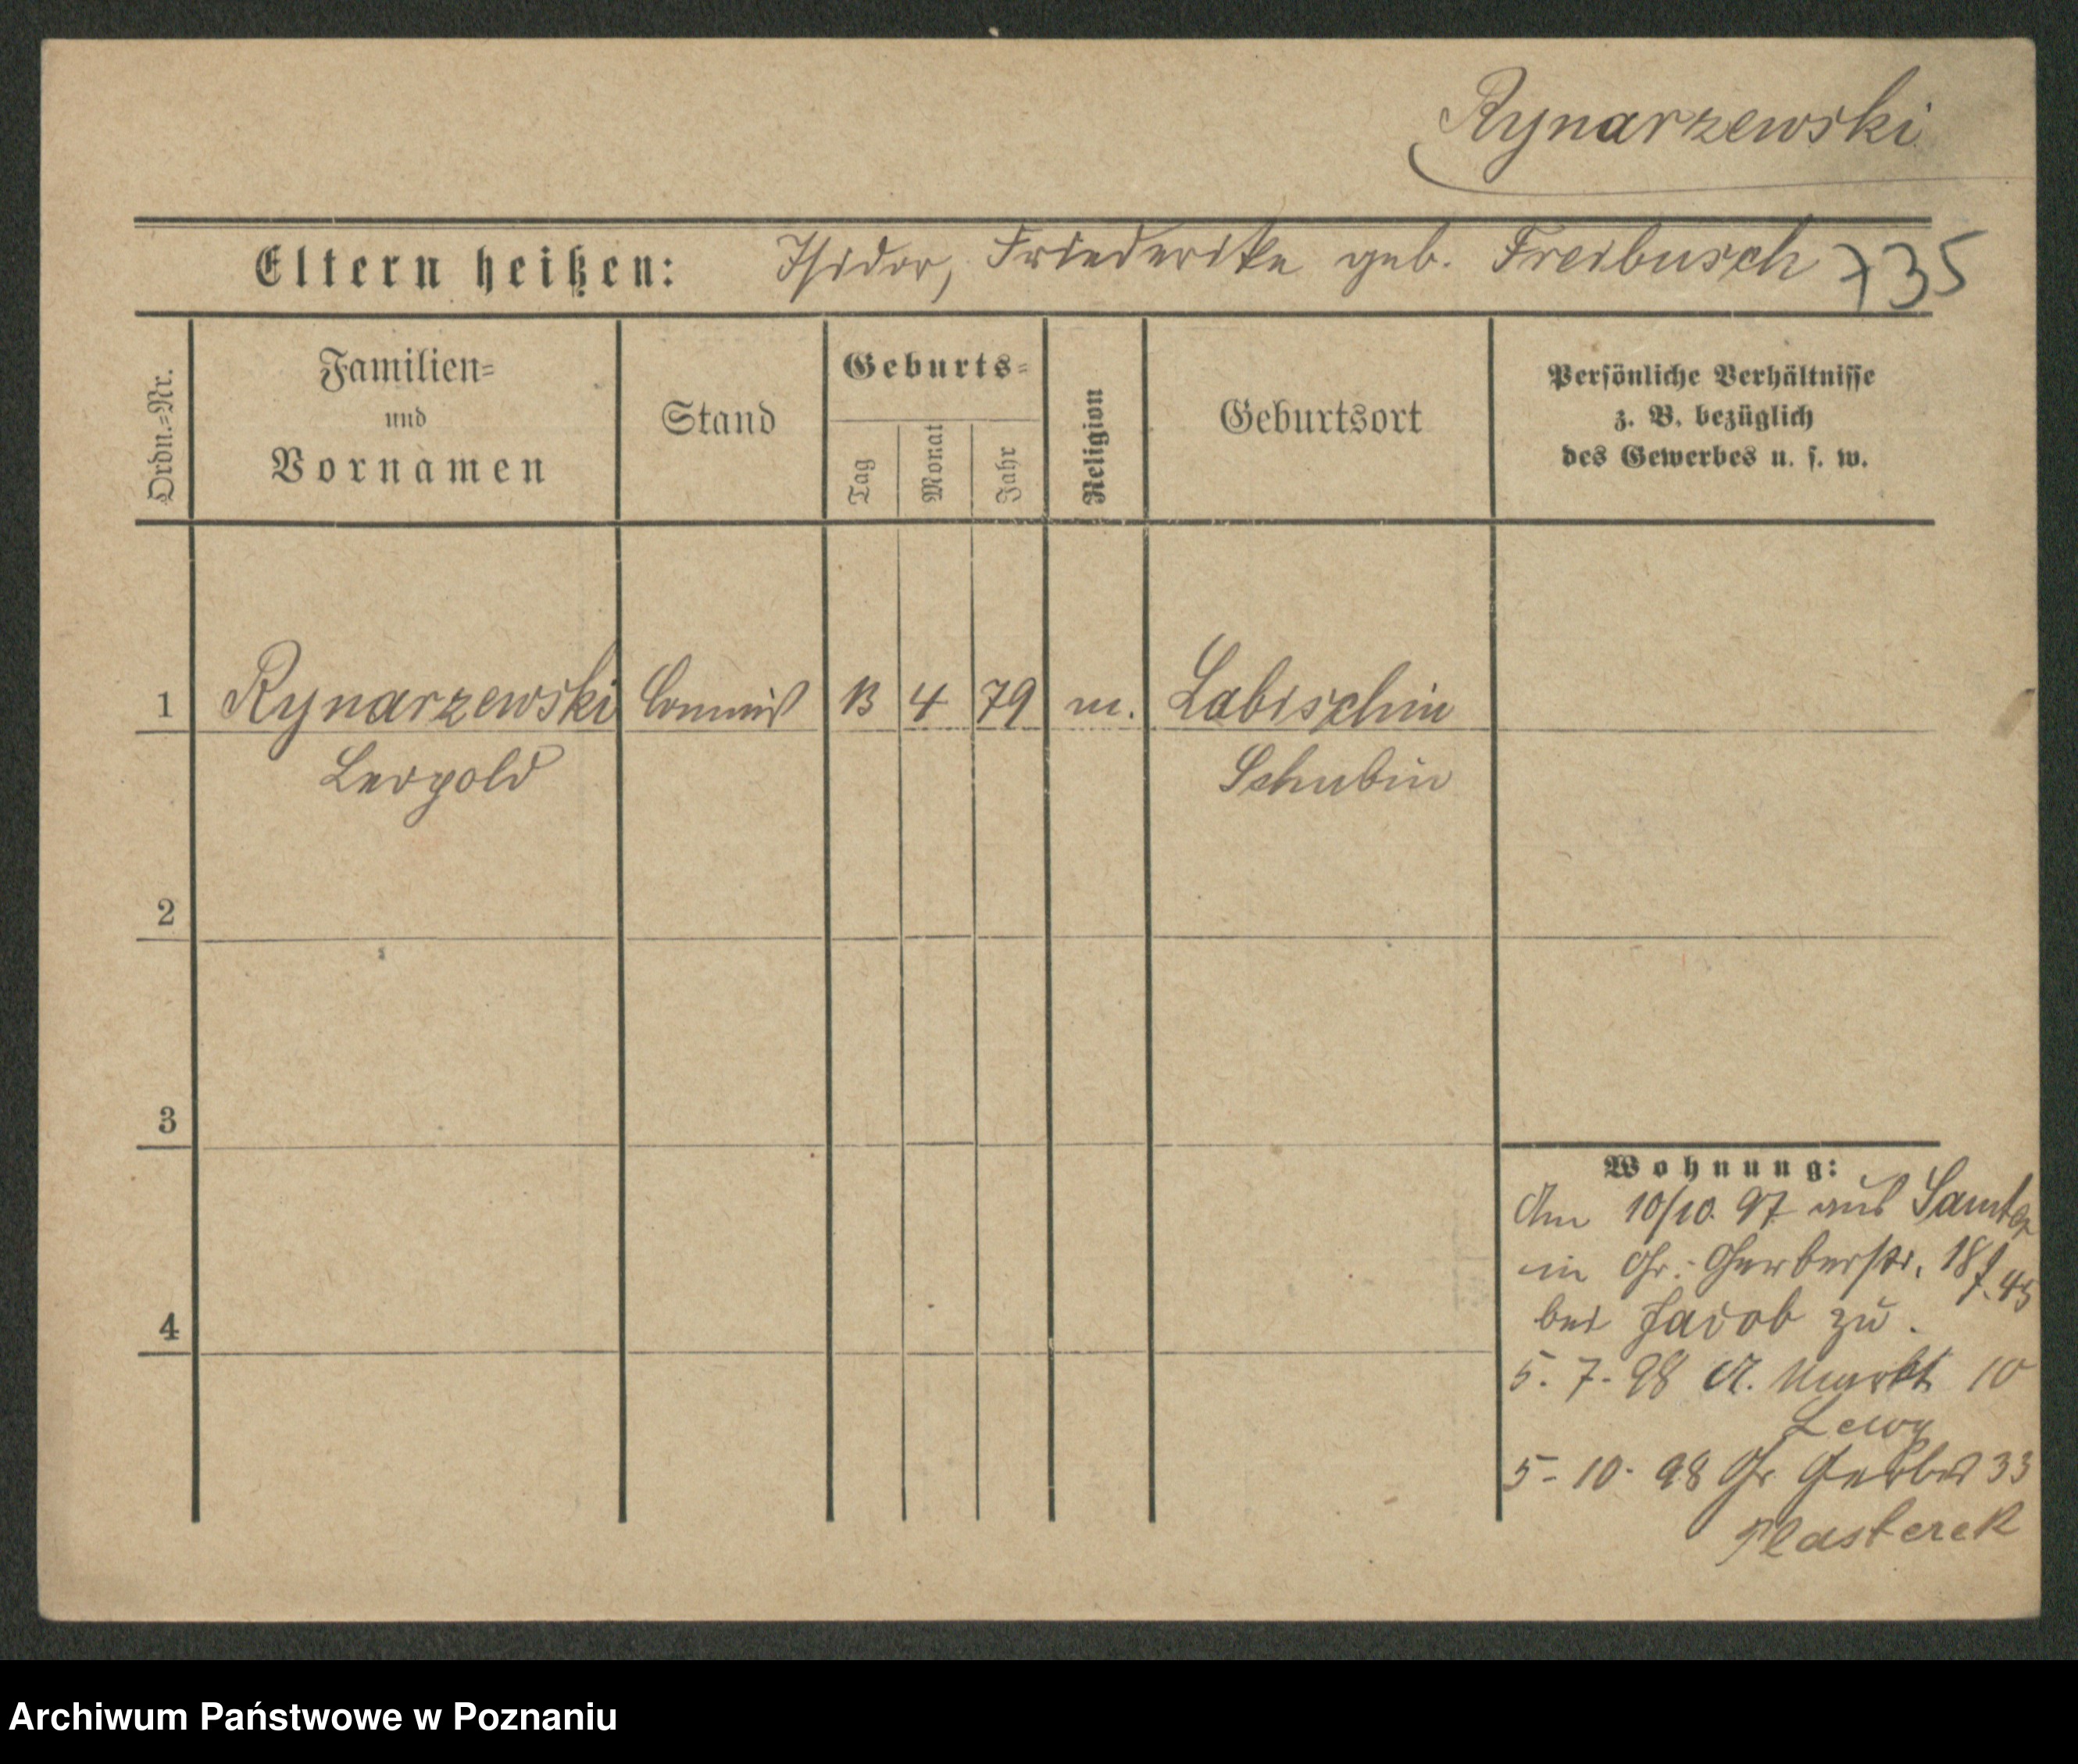 Rynarzewski
Eltern heißen: Isidor, Friederike geb. Freibusch 735
Ordn.=Nr.
Familien=
und
Vornamen
Stand
Geburts=
Tag
Monat
Jahr
Religion
Geburtsort
Persönliche Verhältnisse
z. B. bezüglich
des Gewerbes u. s. w.
1 Rynarzewski Commis 13 4 79 m. Labischin
Leopold Schubin
2
3
4
Wohnung:
Am 10/10. 97 aus Samter
in Gr. Gerberstr. 18
bei Jacob zu.
5. 7. 98 A. Markt 10
Lewy
5-10-98 Gr Gerber 33
Plasterek
Archiwum Państwowe w Poznaniu